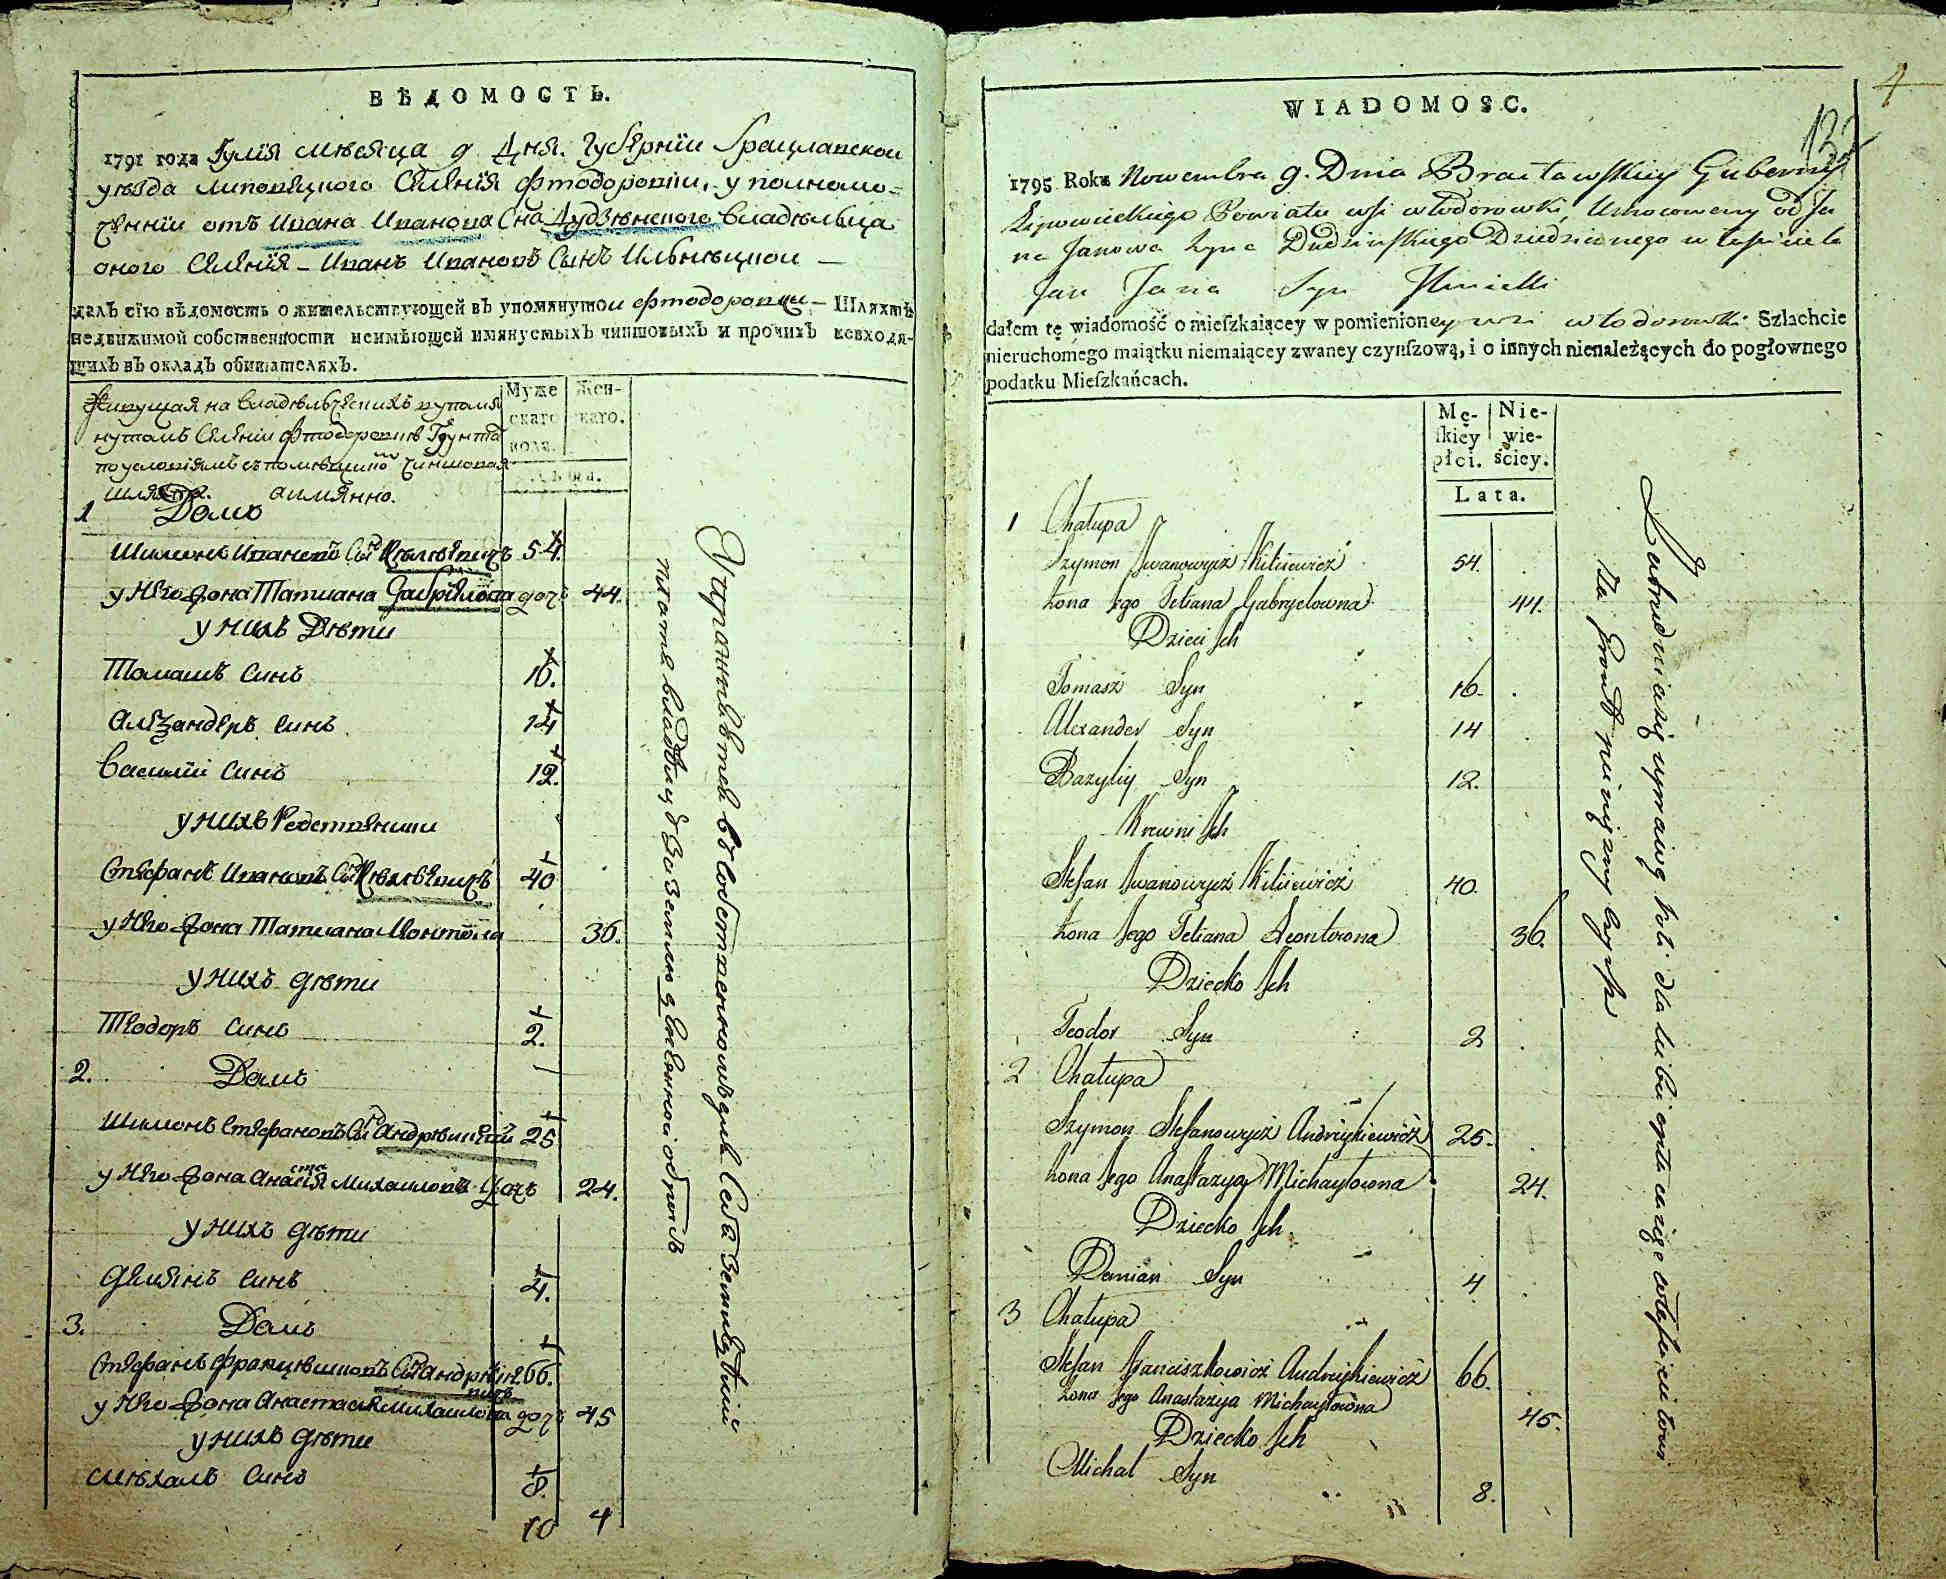 ВѢДОМОСТЬ.
1791 года Іулія мѣсяца 9 Дня. Губернии Брацлавской
уезда Липовецкого Селенія Фтодоровки, у полномо=
ченнии отъ Ивана Иванова Сна Дудзѣнского владѣльца
оного Селенія – Иванъ Ивановъ Сынъ Ильницкои —
далъ сію вѣдомость о жительствующей въ упомянутои Фтодоровки — Шляхтѣ
недвижимой собственности неимѣющей имянуемыхъ чиншовыхъ и прочихъ невходя-
щихъ въ окладъ обитателяхъ.
Живущая на владѣльческихъ в упомя
нутомъ Селеніи Фтодоровке Грунтах
по условіямъ съ помѣщикомъ чиншовая
шляхта. аимянно.
Муже
скаго
пола.
Жен-
скаго.
Лѣта.
1 Домъ
Шимонъ Ивановъ Сынъ Кѣлѣевичъ 54.
у Него Жона Татиана Габріелова дочь 44.
у нихъ Дѣти
Томашъ Синъ 16.
Александеръ Синъ 14
Василій Синъ 12.
у нихъ Родственики
Стефанъ Ивановъ Сынъ Кѣлѣевичъ 40
у Него Жона Татиана Леонтова 36.
у нихъ дѣти
Теодоръ Синъ 2.
2. Домъ
Шимонъ Стефановъ Сынъ Андрѣикевичъ 25
у Него Жона Анастасія Михаилова дочь 24.
у нихъ дѣти
Демянъ Синъ 4.
3. Домъ
Стефанъ Францѣшковъ Сынъ Андрѣикевичъ 66.
у Него Жона Анастасія Михаилова дочь 45
у нихъ дѣти
Мѣхалъ Синъ 8.
10 4
4
132
WIADOMOSC.
1795 Roku Nowembra 9. Dnia Bracławskiey Gubernij
Lipowieckiego Powiatu wsi Włodorowki, Umocowany od Ja
na Janowa Syna Dudzińskiego Dziedzicznego właściciela
Jan Jana Syn Ilnicki
dałem tę wiadomość o mieſzkaiącey w pomienioney wsi Włodorowki Szlachcie
nieruchomego maiątku niemaiącey zwaney czynſzową, i o innych nienależących do pogłownego
podatku Mieſzkańcach.
Mę-
ſkiey
płci.
Nie-
wie-
ściey.
Lata.
1 Chałupa
Szymon Iwanowycz Kiliiewicz 54.
Żona Jego Tetiana Gabryelowna 44.
Dzieci Ich
Tomasz Syn 16.
Alexander Syn 14
Bazyliy Syn 12.
Krewni Ich
Stefan Iwanowycz Kiliiewicz 40.
Żona Jego Tetiana Leontowna 36.
Dziecko Ich
Teodor Syn 2
2 Chałupa
Szymon Stefanowycz Andrzykiewicz 25.
Żona Jego Anastazya Michayłowna 24.
Dziecko Ich.
Demian Syn 4
3 Chałupa
Stefan Franciszkowicz Andrzykiewicz 66.
Żona Jego Anastazya Michayłowna 45.
Dziecko Ich
Michał Syn 8.